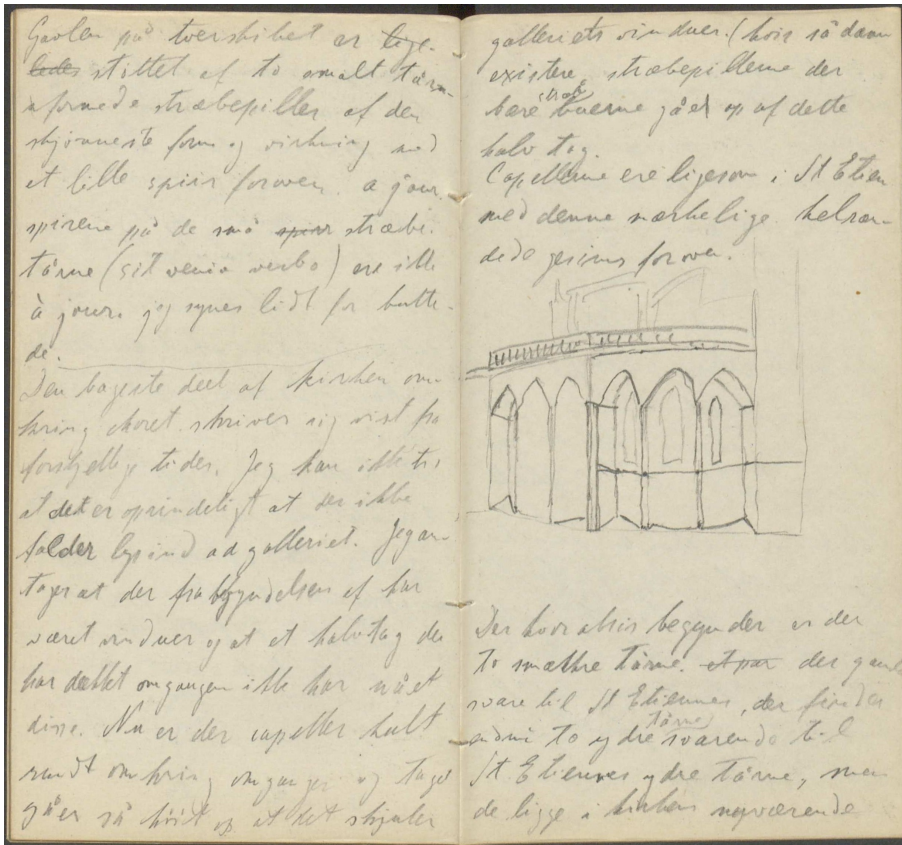 Gavlen på tverskibet er lige-
ledes støttet af to smalt tårn-
formede stræbepiller af den
skjønneste form og virkning med
et lille spiir foroven. a jour.
spirene på de små spiir stræbe-
tårne (sit venia verbo) ere ikke
à jour. jeg synes lidt for butte-
de.
Den bageste deel af kirken om-
kring choret skriver sig vist fra
forskjellige tider. Jeg kan ikke tro
at det er oprindeligt at der ikke
falder lys ind ad galleriet. Jeg an-
tager at der fra begyndelsen af har
været vinduer og at et halvtag der
har dækket omgangen ikke har nået
disse. Nu er der capeller halvt
rundt omkring omgangen og taget
gåer så høit op at det skjuler
galleriets vinduer. (hvis sådann
existere, stræbepillerne der
bære stræbbuerne gået op af dette
halvtag.
Capellerne ere ligesom i St Etien
med denne mærkelige helrøn-
dede gesims foroven.
Der hvor absis begynder er der
to smækkre tårne. et par der gand
svare til St Etiennes, der findes
endnu to ydre tårne svarende til
St. Etiennes ydre tårne, men
de ligge i kirkens nuværende